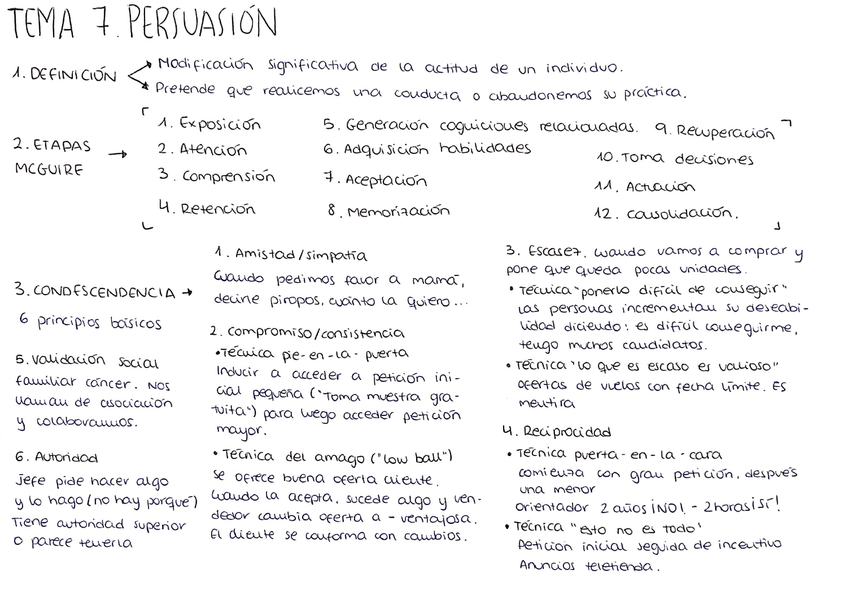 TEMA 7. PERSUASIÓN
1. DEFINICIÓN
Modificación significativa de la actitud de un individuo.
Pretende que realicemos una conducta o abandonemos su práctica.
2. ETAPAS
MCGUIRE
1. Exposición
2. Atención
3. Comprensión
4. Retención
5. Generación cogniciones relacionadas.
6. Adquisición habilidades
7. Aceptación
8. Memorización
9. Recuperación
10. Toma decisiones
11. Actuación
12. consolidación.
3. CONDESCENDENCIA →
6 principios básicos
1. Amistad/simpatía
Cuando pedimos favor a mamá,
decirle piropos, cuánto la quiero...
2. Compromiso/consistencia
• Técnica pie-en-la-puerta
Inducir a acceder a petición ini-
cial pequeña ("Toma muestra gra-
tuita") para luego acceder petición
mayor.
• Técnica del amago ("low ball")
se ofrece buena oferta cliente.
Cuando la acepta, sucede algo y ven-
dedor cambia oferta a - ventajosa.
El cliente se conforma con cambios.
3. Escasez. cuando vamos a comprar y
pone que queda pocas unidades.
• Técnica "ponerlo difícil de conseguir"
Las personas incrementan su deseabi-
lidad diciendo: es difícil conseguirme,
tengo muchos candidatos.
• Técnica "lo que es escaso es valioso"
ofertas de vuelos con fecha límite. Es
mentira
4. Reciprocidad
• Técnica puerta-en-la-cara
comienza con gran petición, después
una menor
orientador 2 años ¡NO! - 2 horas ¡sí!
• Técnica "esto no es todo"
Petición inicial seguida de incentivo
Anuncios teletienda.
5. Validación social
familiar cáncer. Nos
llaman de asociación
y colaboramos.
6. Autoridad
Jefe pide hacer algo
y lo hago (no hay porqué)
Tiene autoridad superior
o parece tenerla